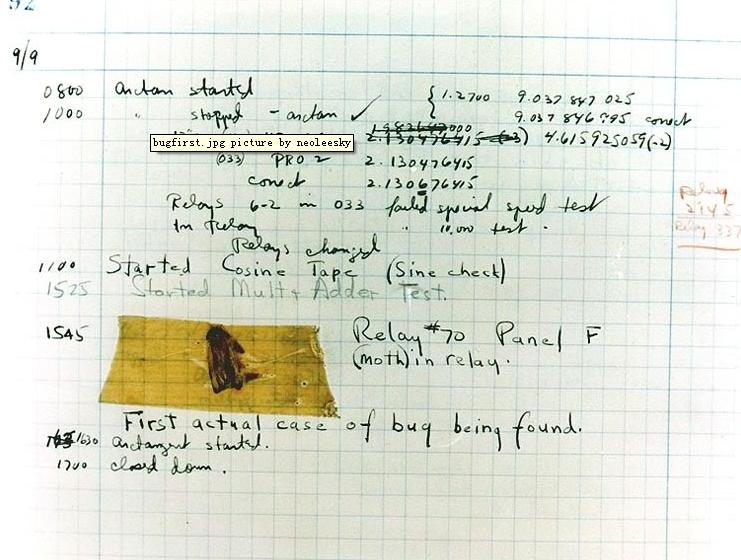 92
9/9
0800 arctan started { 1.2700 9.037 847 025
1000 " stopped - arctan ✓ 9.037 846 995 correct
2.130476415 (-3) 4.615925059(-2)
bugfirst.jpg picture by neoleesky
(033) PRO 2 2.130476415
correct 2.130676415
Relays 6-2 in 033 failed special speed test
In Relay " 10,000 test .
Relays changed
Relay
2145
Relay 337
1100 Started Cosine Tape (Sine check)
1525 Started Mult + Adder Test.
1545 Relay #70 Panel F
(moth) in relay.
First actual case of bug being found.
1630 arctangent started.
1700 closed down.